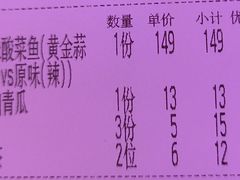 数量 单价 小计
酸菜鱼(黄金蒜 1份 149 149
vs原味(辣))
青瓜 1份 13 13
3份 5 15
2位 6 12